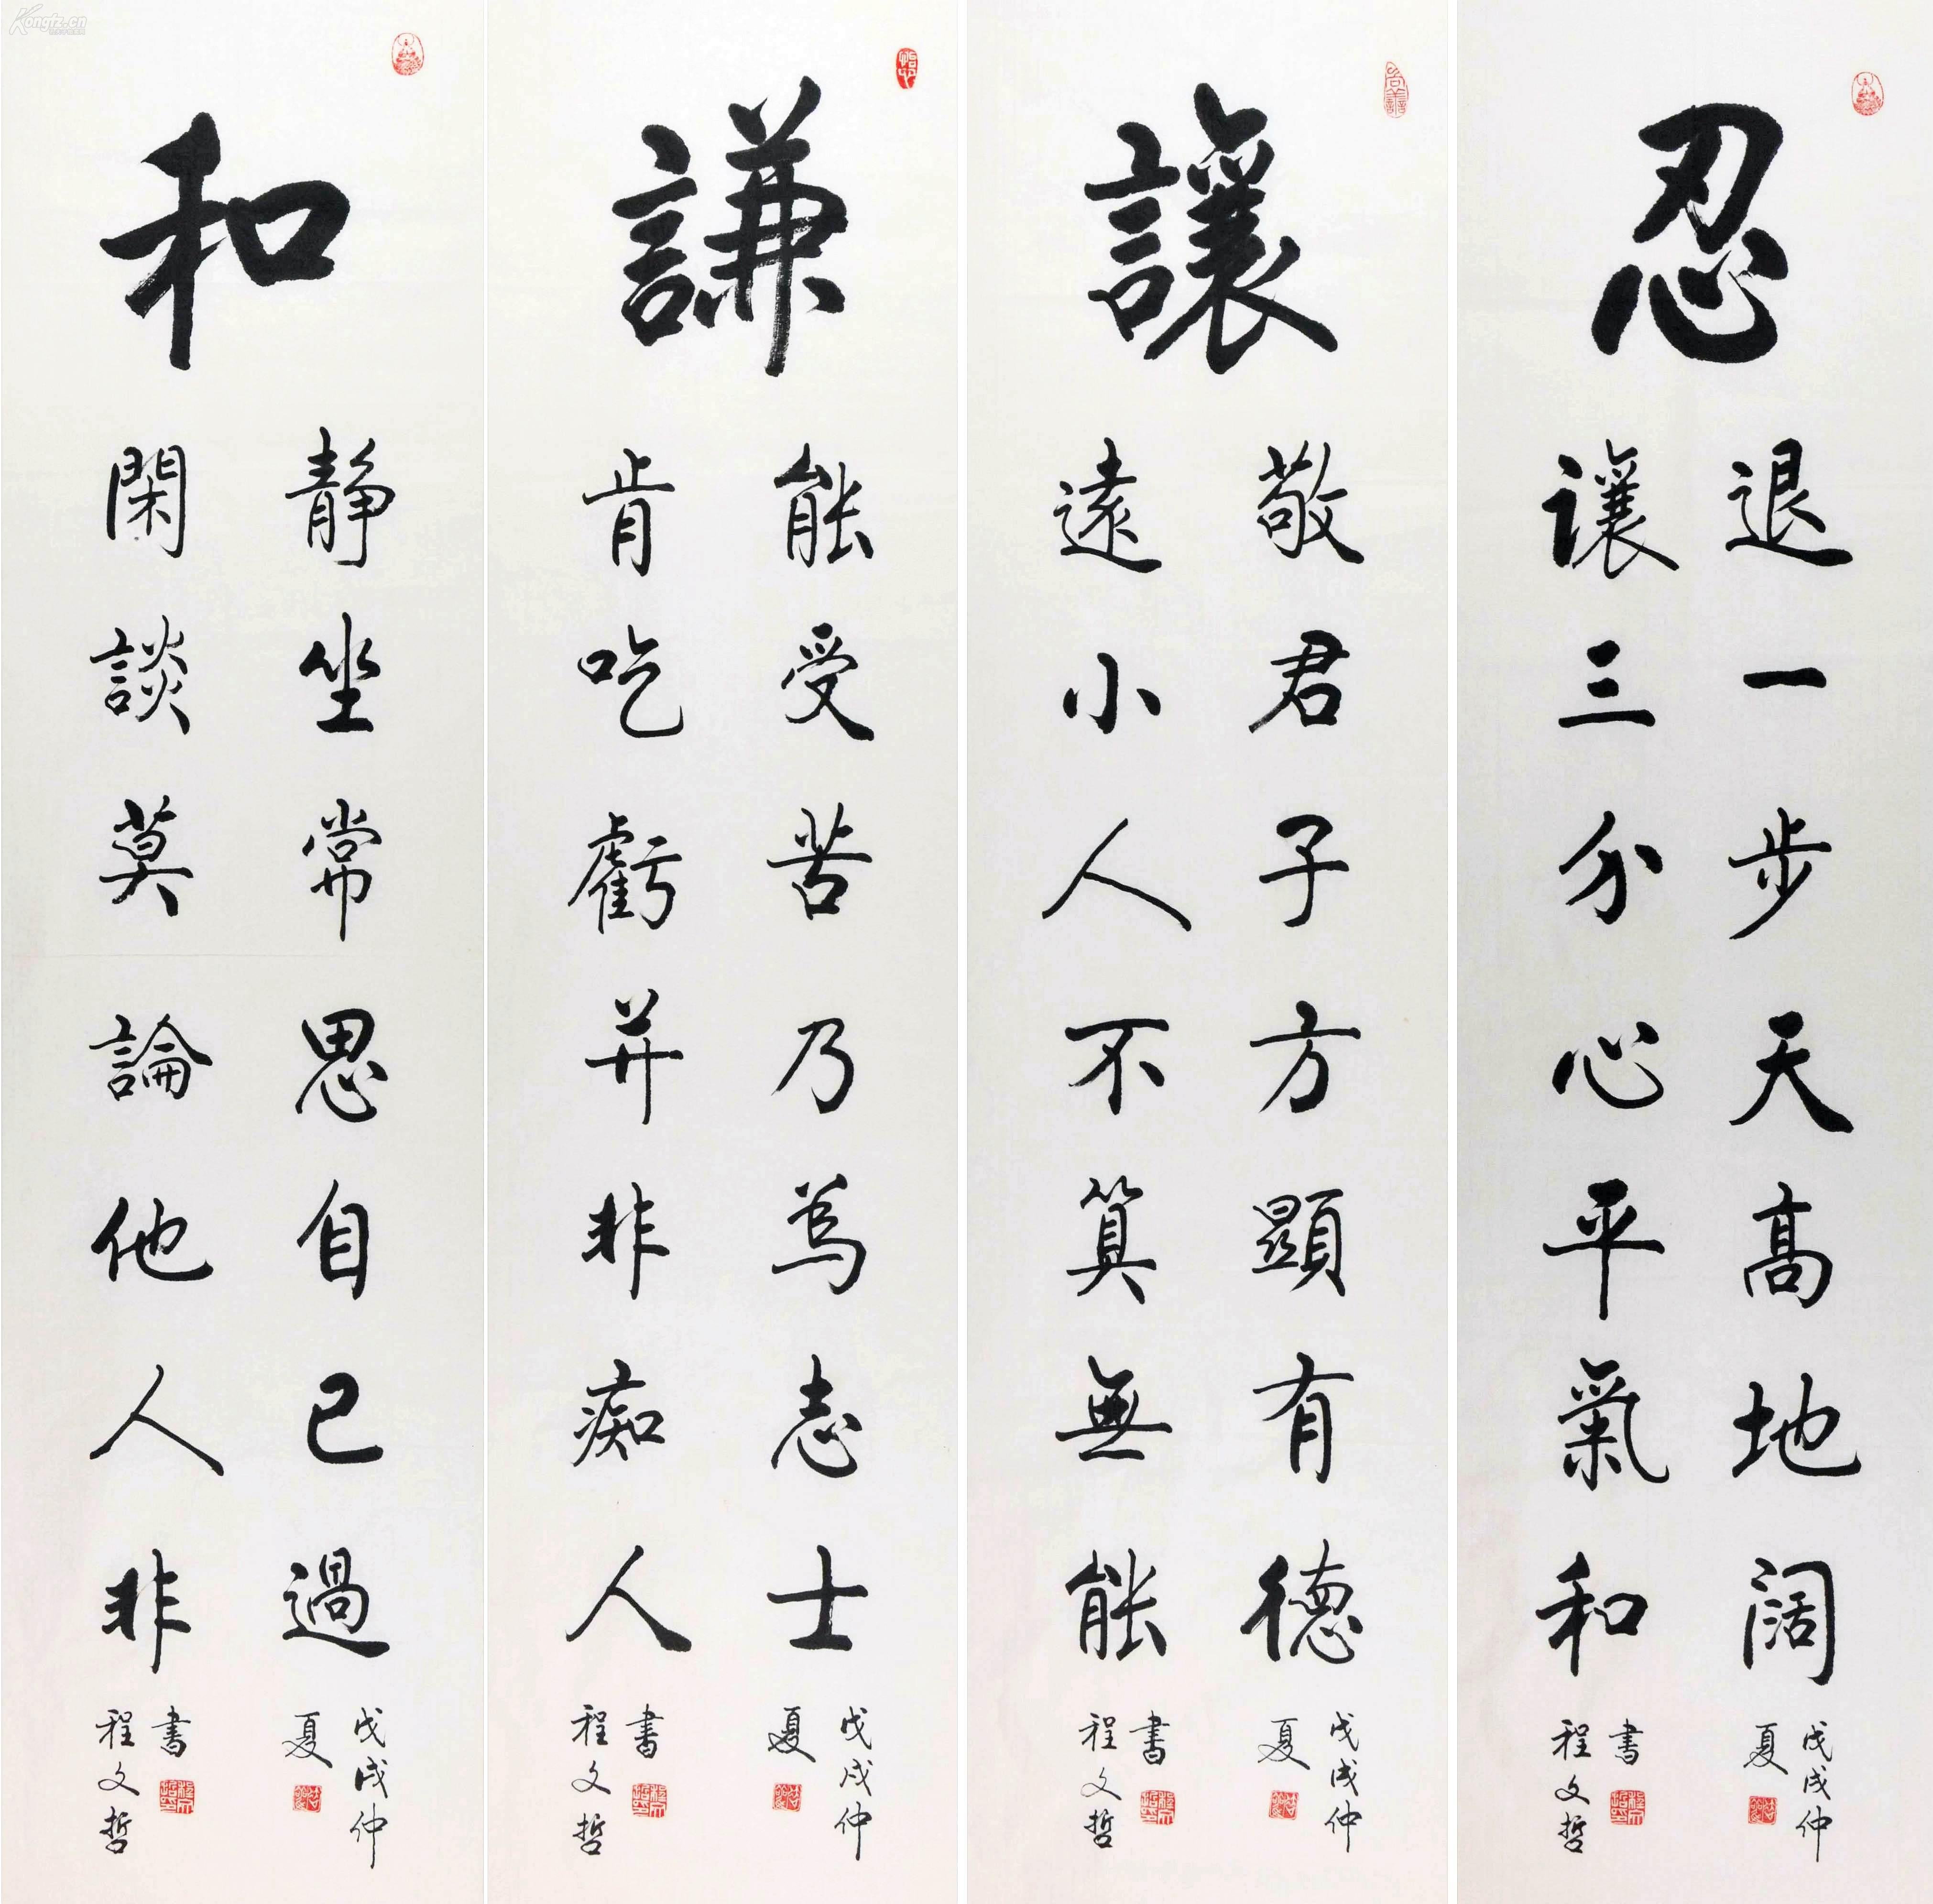 忍
退一步天高地闊
讓三分心平氣和
戊戌仲
夏
書
程文哲
讓
敬君子方顯有德
遠小人不算無能
戊戌仲
夏
書
程文哲
謙
能受苦乃爲志士
肯吃虧并非痴人
戊戌仲
夏
書
程文哲
和
靜坐常思自己過
閑談莫論他人非
戊戌仲
夏
書
程文哲
Kongfz.cn